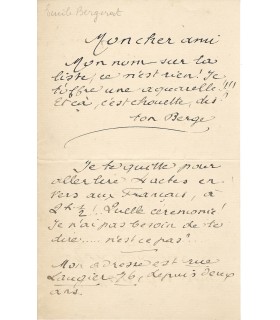 Emile Bergerat
Mon cher ami
Mon nom sur la
liste, ce n'est rien! Je
t'offre une aquarelle!!!
Et ça, c'est chouette, dis!
ton Berge
Je te quitte pour
aller lire 3 actes en
vers aux Français, à
2h ½! Quelle ceremonie!
Je n'ai pas besoin de te
dire..... n'est ce pas"
Mon adresse est rue
Laugier 76, depuis deux
ans.